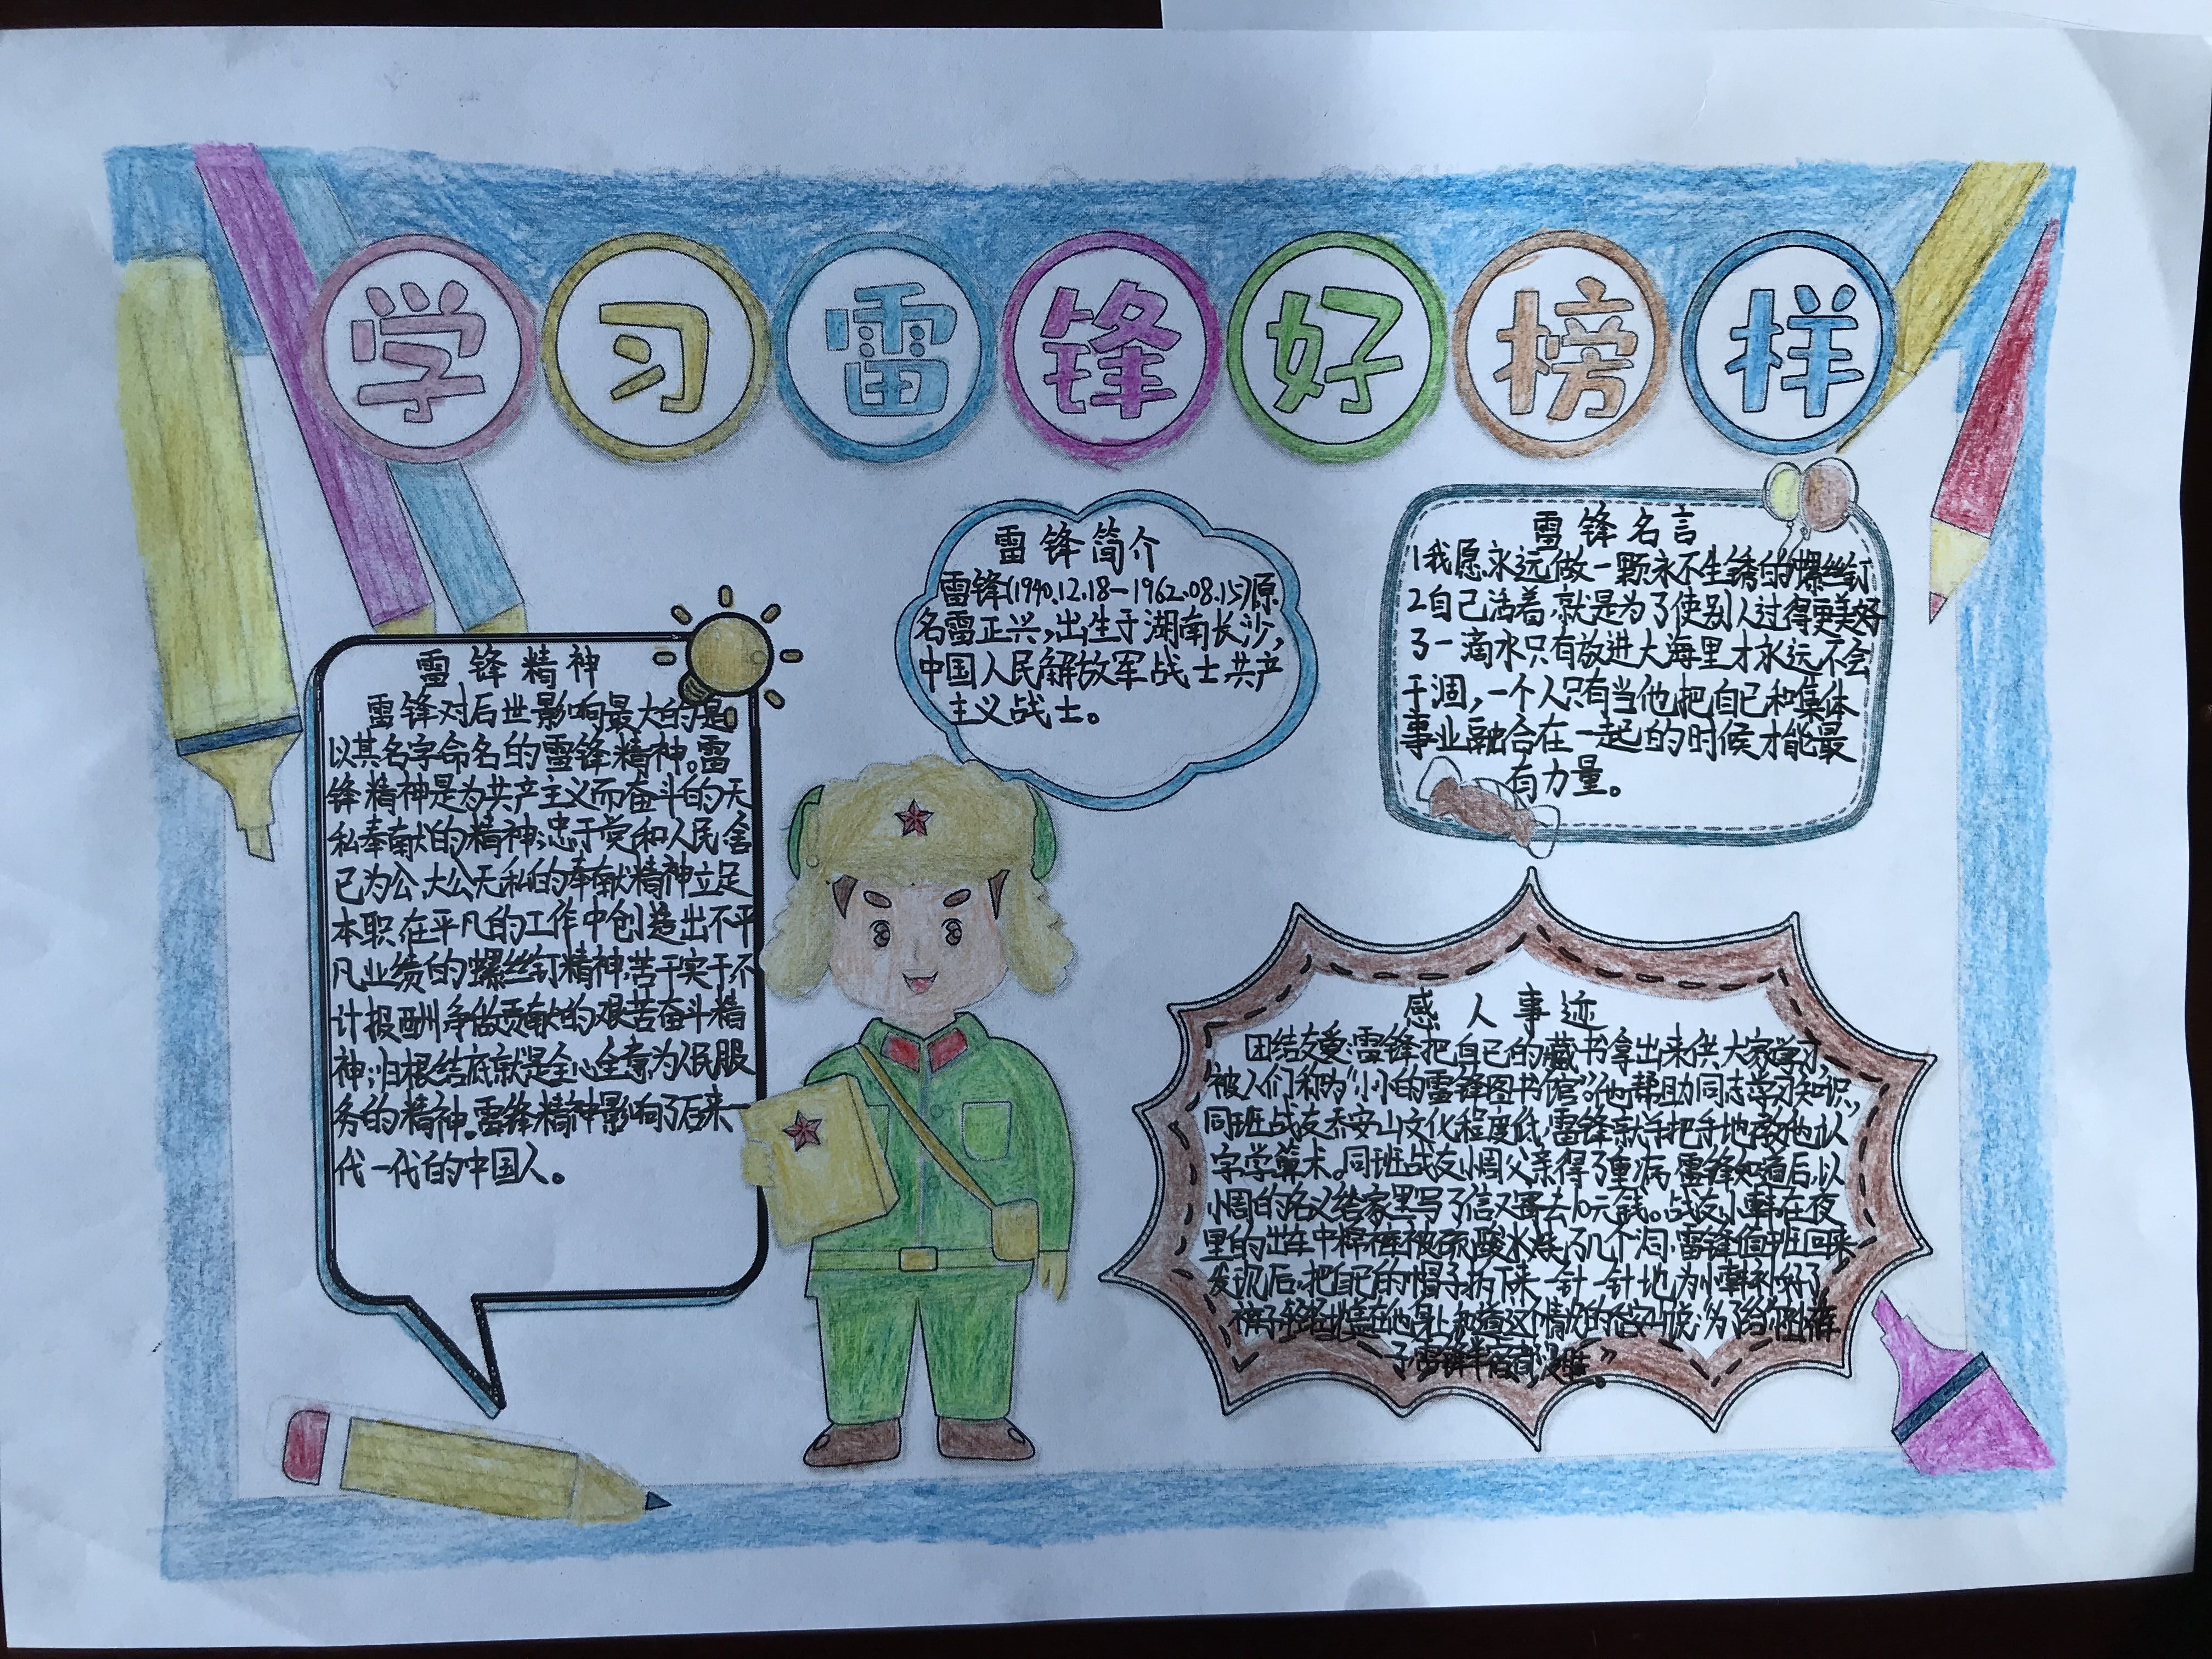 学习雷锋好榜样
雷锋简介
雷锋(1940.12.18-1962.08.15)原
名雷正兴,出生于湖南长沙,
中国人民解放军战士共产
主义战士。
雷锋名言
1我愿永远做一颗永不生锈的螺丝钉
2自己活着,就是为了使别人过得更美好
3一滴水只有放进大海里才永远不会
干涸,一个人只有当他把自己和集体
事业融合在一起的时候才能最
有力量。
雷锋精神
雷锋对后世影响最大的是
以其名字命名的雷锋精神。雷
锋精神是为共产主义而奋斗的无
私奉献的精神;忠于党和人民,舍
己为公,大公无私的奉献精神立足
本职在平凡的工作中创造出不平
凡业绩的螺丝钉精神,苦干实干不
计报酬,争做贡献的艰苦奋斗精
神;归根结底就是全心全意为人民服
务的精神。雷锋精神影响了后来一
代一代的中国人。
感人事迹
团结友爱:雷锋把自己的藏书拿出来供大家学习,
被人们称为“小小的雷锋图书馆”。他帮助同志学习知识,
同班战友乔安山文化程度低,雷锋就手把手地教他认
字,学算术。同班战友小周父亲得了重病,雷锋知道后,以
小周的名义给家里写了信又寄去10元钱。战友小韩在夜
里的出车中棉裤被硫酸水烧了几个洞,雷锋值班回来
发现后,把自己的帽子拆下来一针一针地为小韩补好了
裤子,轻轻地盖在他身上,知道这个情况的乔安山说:“为了给你补裤
子,雷锋半宿都没睡。”